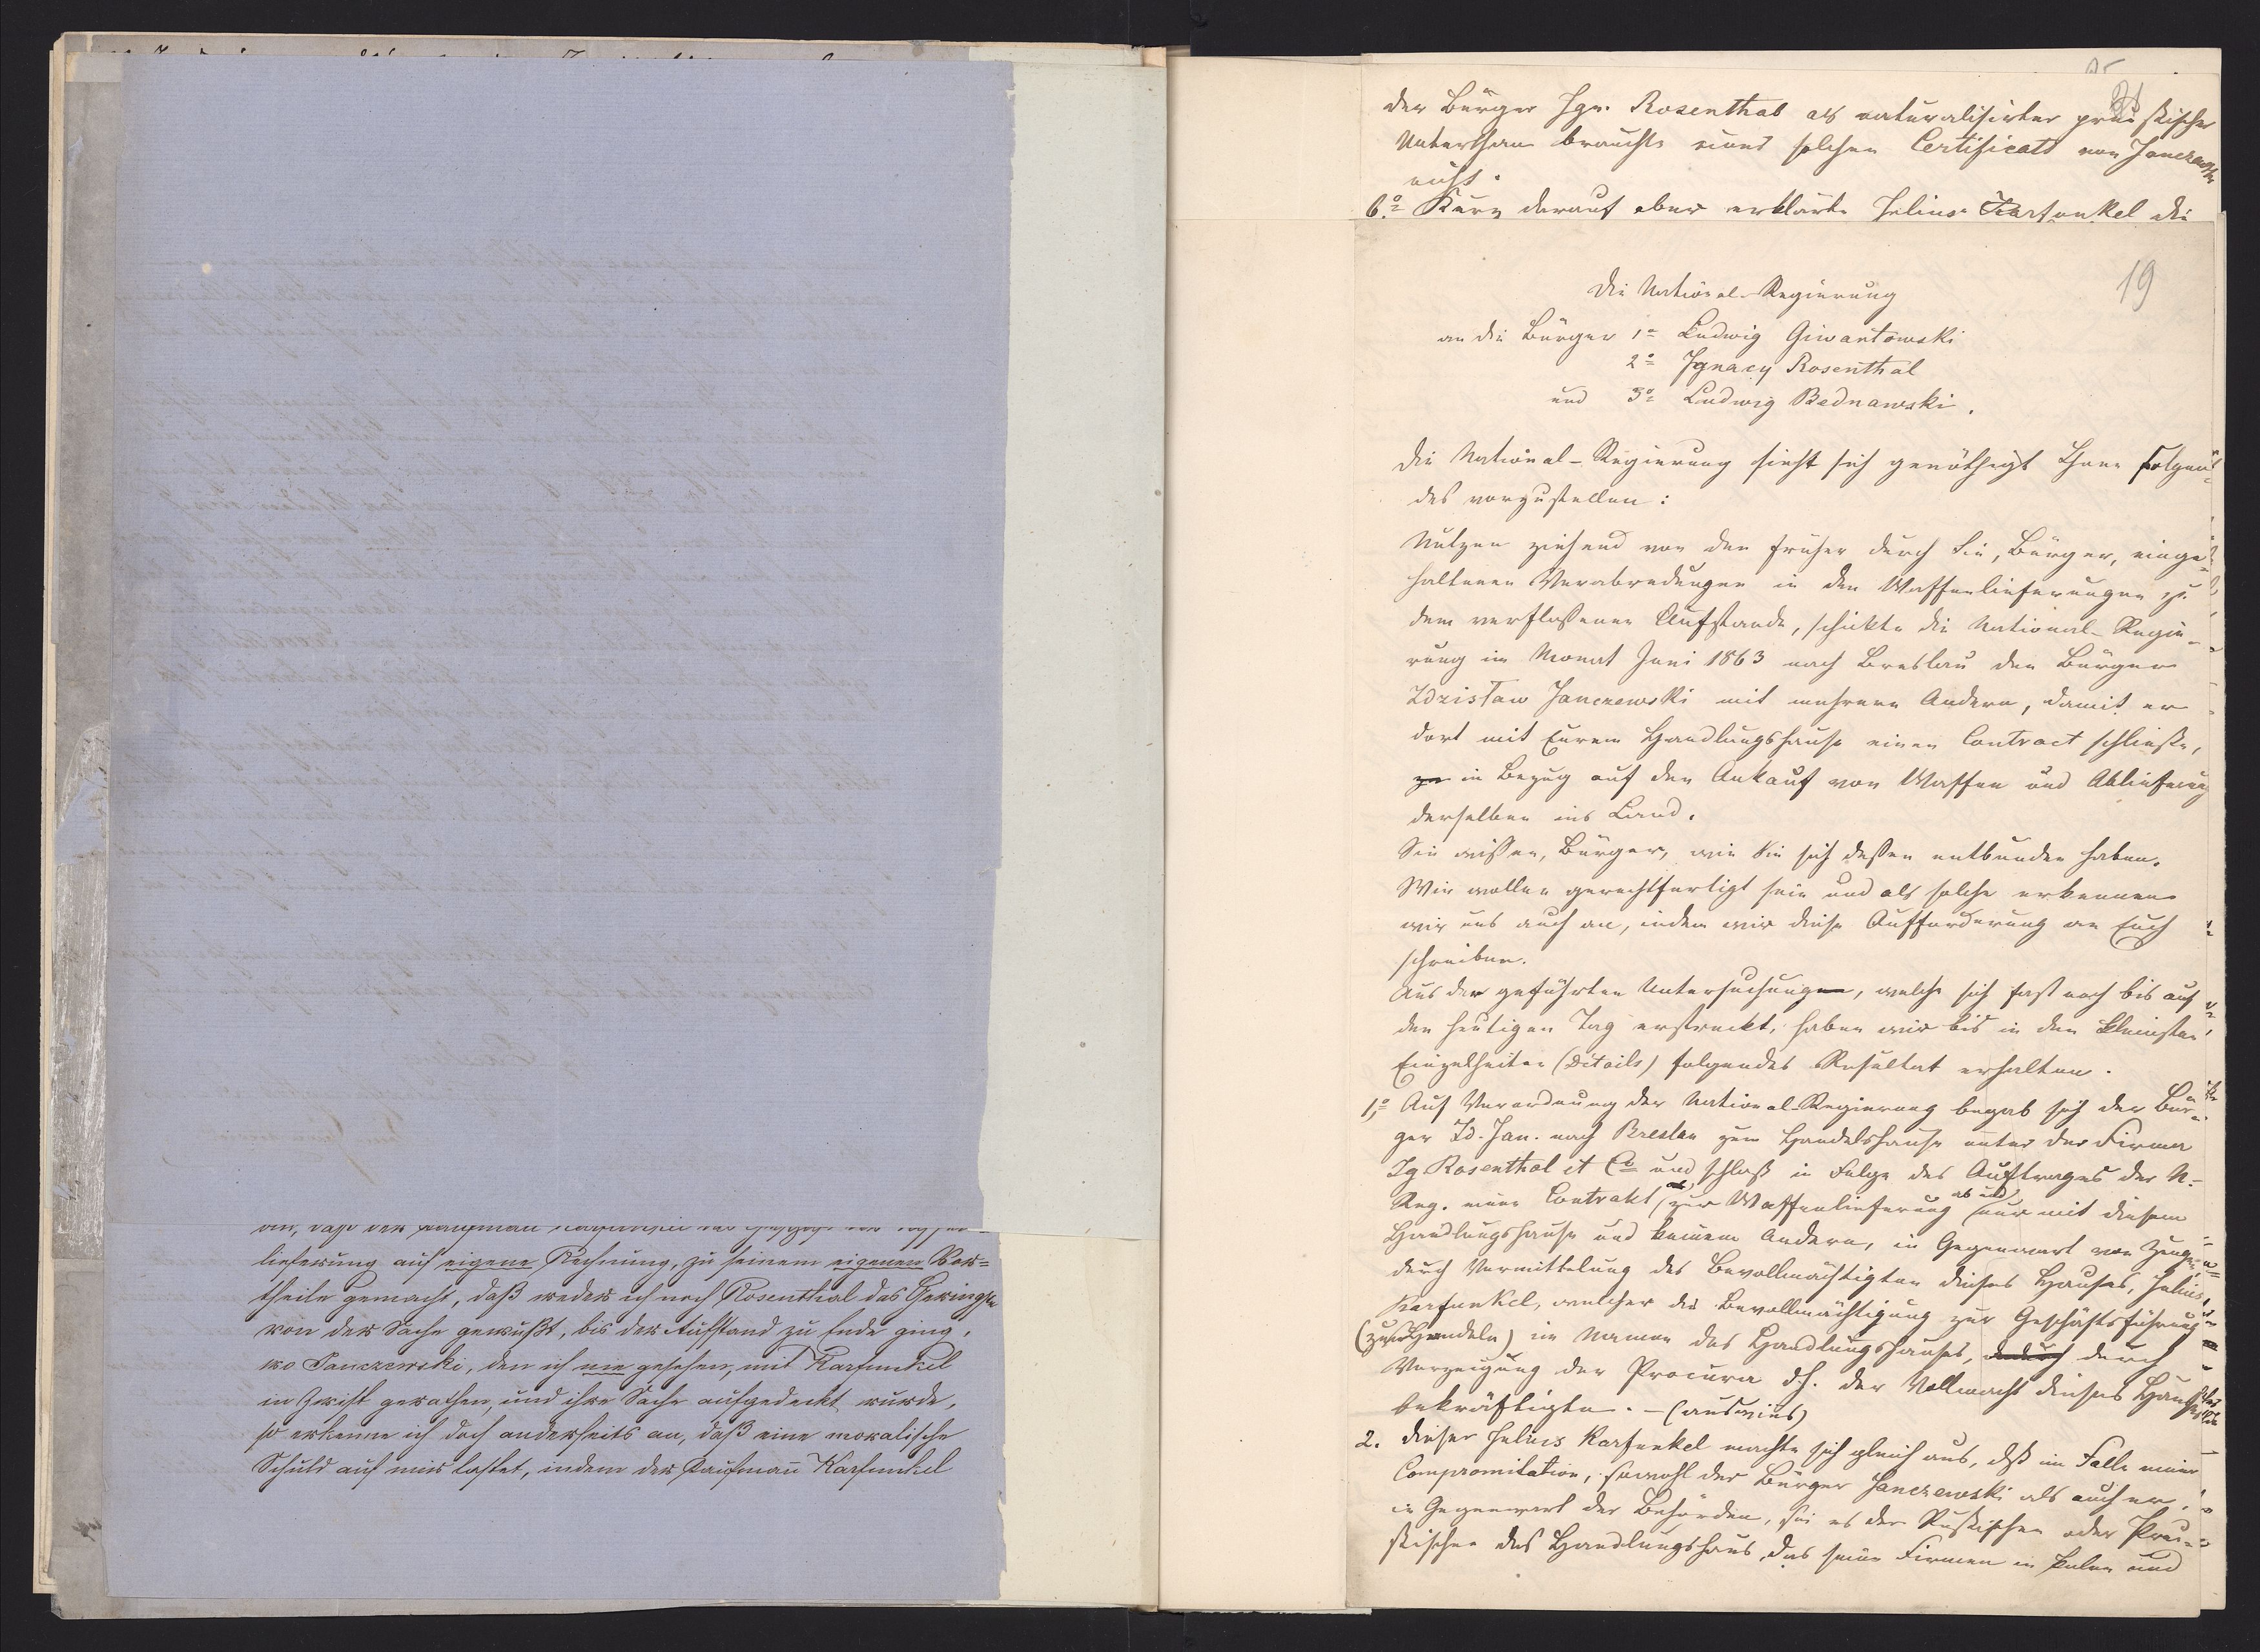 lieferung auf eigene Rechnung, zu seinem eigenen Vor=
theile gemacht, daß weder ich noch Rosenthal das Geringste
von der Sache gewußt, bis der Aufstand zu Ende ging,
wo Janczewski, den ich nie gesehen, mit Karfunkel
in Zwist gerathen, und ihre Sache aufgedeckt wurde,
so erkenne ich doch anderseits an, daß eine moralische
Schuld auf mir lastet, indem der Kaufmann Karfunkel
der Bürger Ign. Rosenthal als naturalisirter preußischer
Unterthan brauchte eines solchen Certificats von Janczewski
nicht.
6.º Kurz darauf aber erklärte Julius Karfunkel die
19
Die National-Regierung
an die Bürger 1º Ludwig Giwartowski
2º Ignacy Rosenthal
und 3º Ludwig Bednawski.
Die National-Regierung sieht sich genöthigt Ihnen Folgen-
des vorzustellen:
Nutzen ziehend von den früher durch Sie, Bürger, einge-
haltenen Verabredungen in den Waffenlieferungen zu
dem verfloßenen Aufstande, schickte die National-Regie-
rung im Monat Juni 1863 nach Breslau den Bürger
Zdzisław Janczewski mit mehreren Andern, damit er
dort mit Eurem Handlungshause einen Contract schließe,
in Bezug auf den Ankauf von Waffen und Ablieferung
derselben ins Land.
Sie wißen, Bürger, wie Sie sich deßen entbunden haben.
Wir wollen gerechtfertigt sein und als solche erkennen
wir uns auch an, indem wir diese Aufforderung an Euch
schreiben.
Aus der geführten Untersuchung, welche sich fast noch bis auf
den heutigen Tag erstreckt, haben wir bis in den kleinsten
Einzelheiten (Détails) folgendes Resultat erhalten.
1º Auf Verordnung der National-Regierung begab sich der Bür-
ger Zd. Jan. nach Breslau zum Handelshause unter der Firma
Ig Rosenthal et Cº und schloß in Folge des Auftrages der N.-
Reg. einen Contrakt zur Waffenlieferung ab und nur mit diesem
Handlungshause und keinem Andern, in Gegenwart von Zeugen
durch Vermittelung des Bevollmächtigten dieses Hauses, Julius
Karfunkel, welcher die Bevollmächtigung zur Geschäftsführung
(zum Handeln) im Namen des Handlungshauses, durch
Vorzeigung der Procura d.h. der Vollmacht dieses Hauses
bekräftigte. – (auswies)
2. Dieser Julius Karfunkel machte sich gleich aus, daß im Falle einer
Compromitation, sowohl der Bürger Janczewski als auch er,
in Gegenwart der Behörden, sei es der Rußischen oder Preu-
ßischen das Handlungshaus, das seine Firmen in Polen und